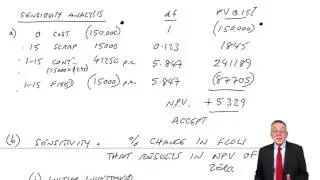 SENSITIVITY ANALYSIS df PV @ 15%
a) 0 COST (150,000) 1 (150,000)
15 SCRAP 15000 0.123 1845
1-15 CONT- 41250 p.a. 5.847 241189
(15000 × 2.75)
1-15 FIXED (15000) p.a. 5.847 (87705)
N.P.V. + 5329
ACCEPT
(b) SENSITIVITY = % CHANGE IN FLOW
THAT RESULTS IN NPV OF
ZERO.
(i) INITIAL INVESTMENT